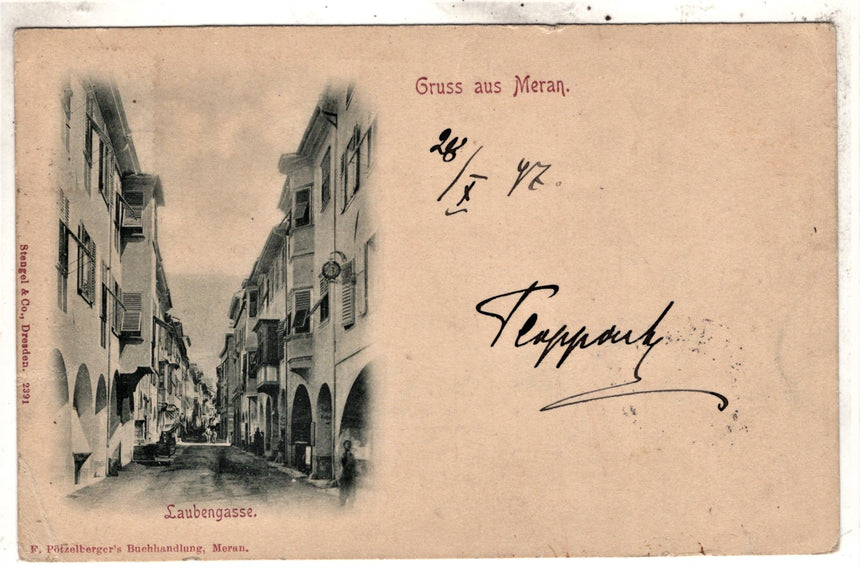 Gruss aus Meran.
28/X 97.
Stengel & Co., Dresden. 2391
Laubengasse.
F. Pötzelberger's Buchhandlung, Meran.